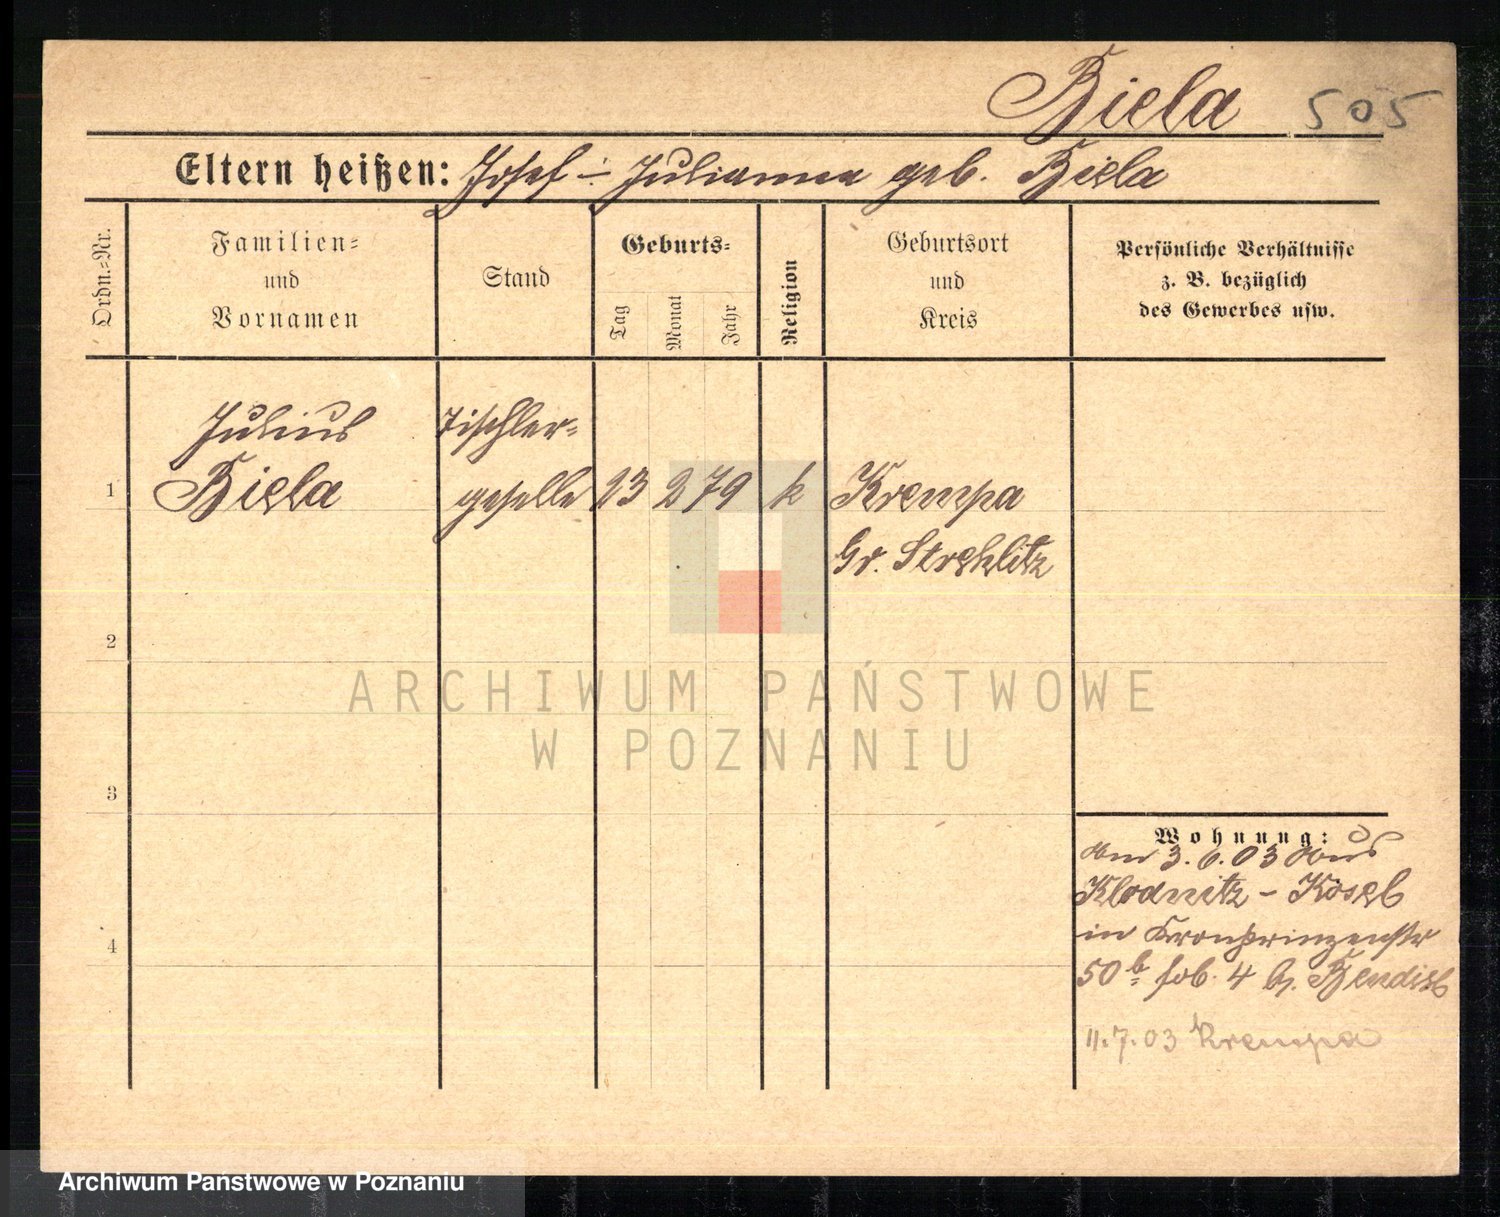 Biela 505
Eltern heißen: Josef - Julianna geb. Biela
Ordn.=Nr.
Familien=
und
Vornamen
Stand
Geburts=
Tag
Monat
Jahr
Religion
Geburtsort
und
Kreis
Persönliche Verhältnisse
z. B. bezüglich
des Gewerbes usw.
Julius
Biela
Tischler=
geselle
1
23 2 79 k
Krempa
Gr. Strehlitz
2
ARCHIWUM PAŃSTWOWE
W POZNANIU
3
Wohnung:
Am 3.6.03 aus
Klodnitz - Kosel
in Kronprinzenstr
50 b 4 b.
4
11.7.03 Krempa
Archiwum Państwowe w Poznaniu